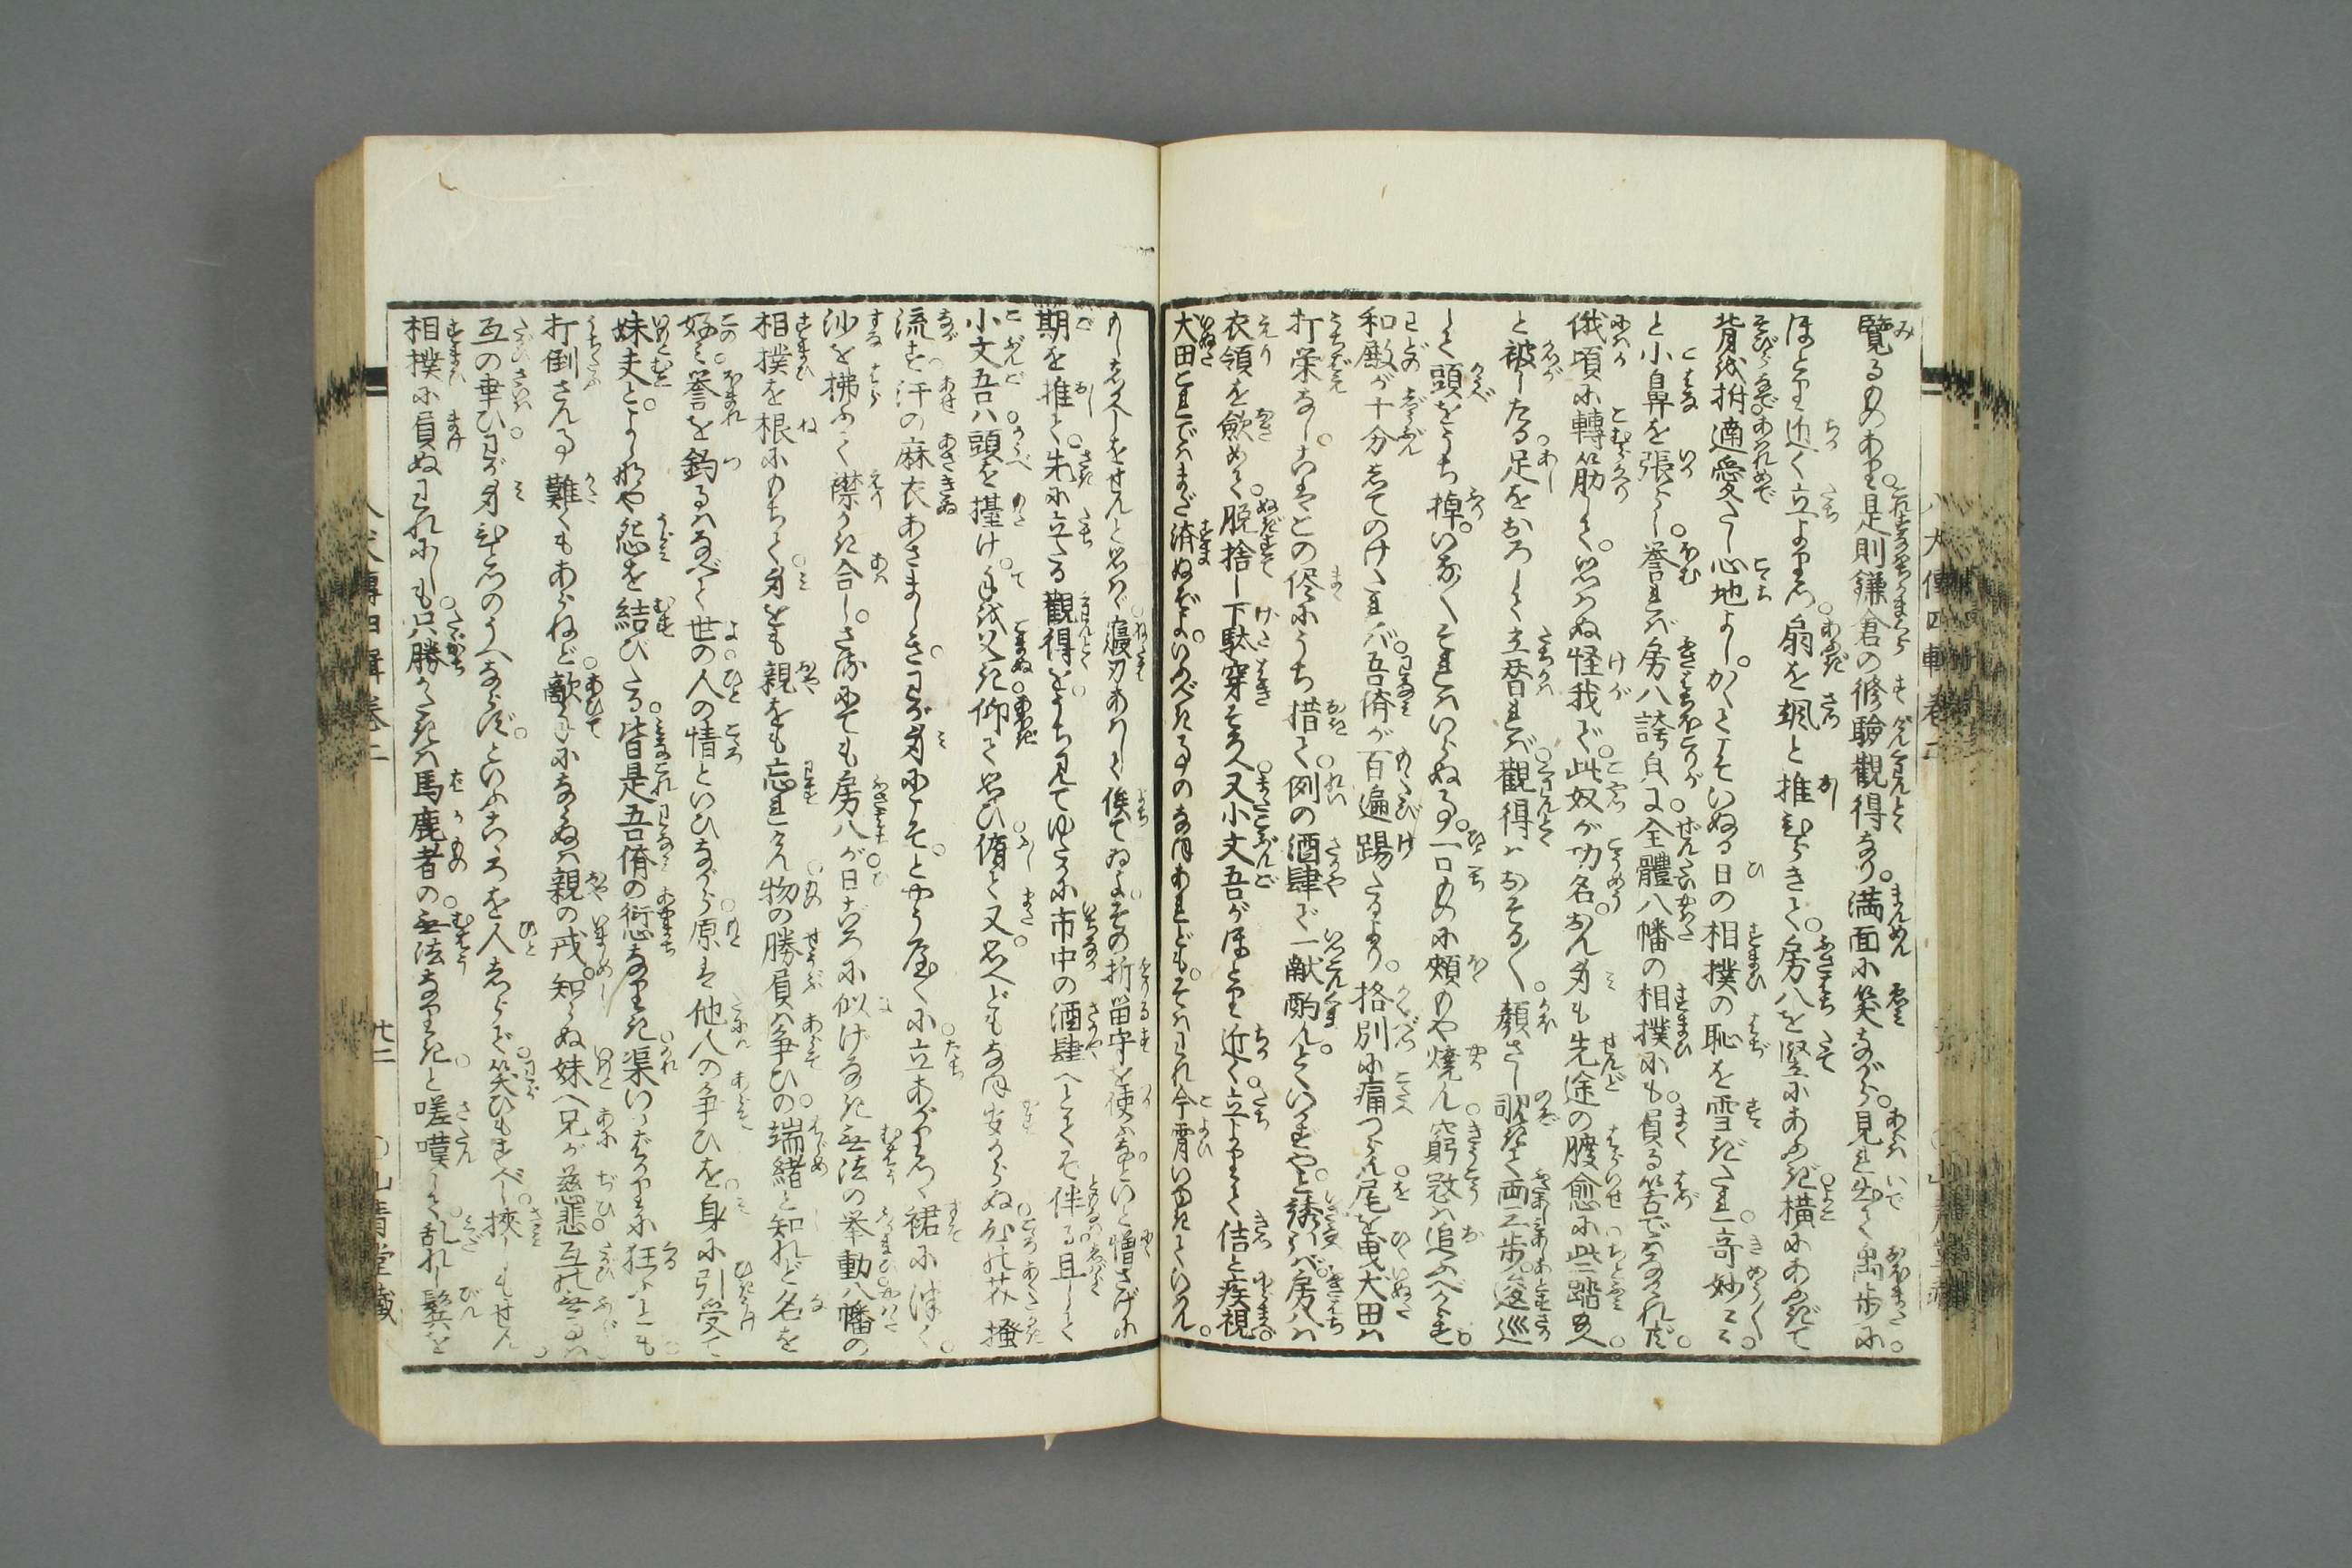 覧るものあり。是則鎌倉の修驗觀得なり。満面に笑ながら。見れ出て禹歩に。
ほとり近く立よりつ。扇を颯と推ひらきて。房八を竪にあふぎ横にあふぎて
背を拊適愛たし心地よし。かくてこそいぬる日の相撲の恥を雪ぎたれ。奇妙々々。
と小鼻を張らし。誉れば房八誇貝に。全體八幡の相撲にも。負る筈ではなかれど。
俄頃に轉筋して。思はぬ怪我で。此奴が功名。おん身も先途の腹愈に些踏給へ。
と被したる足をおろして立替れば。觀得はおそる〳〵。顔さし覗きて両三歩。逡巡
して頭をうち掉。いな〳〵それはいらぬ事。一口ものに頬のや燒ん窮寇は追ふべからず。
和殿が十分しての
けたれば。吾儕が百遍踢たるより。格別に痛つらん。尾を曳犬田は
打栄なし。さはとこの儘にうち措て。例の酒肆で一献酌ん。とくいざや。と誘へば。房八は
衣領を歛めて。脱捨し下駄穿そろへ又小文吾がほとり近く。立よりて佶と疾視
犬田これではまだ済ぬぞよ。いふべき事のなほあれども。そはわれ今宵いゆきていはん。
のしあへしをせんと思はゞ。寝刃あはして俟てゐよ。その折留守を使ふな。といと憎さげに
期を推て。先に立たる觀得を。うち見てゆらに市中の酒肆へとてぞ伴る。且して
小文吾は頭を擡け。手を叉き仰て思ひ。俯て又。思へどもなほ安からぬ。心の花掻
流す汗の麻衣あさましきわが身にこそ。とやう屋く
に立あがりつゝ裙に津く。
沙を拂ふて襟かき合し。さるにても房八が日ごろに似げなき無法の挙動八幡の
相撲を根にもちて。身をも親をも忘れけん物の勝負は争ひの端緒と知れど名を
好み。誉を釣るはなべて世の人の情といひながら。原は他人の争ひを。身に引受て
妹夫と。よしなや怨を結びたる。皆是吾儕の愆なりき。渠いかばかりに狂ふとも。
打倒さん事難くもあらねど。敵手にならぬは親の戒。知らぬ妹へ兄が慈悲。互の無事は
互の幸ひ。わが身ひとつのうへならず。といふこゝろを人しらで。笑ひもすべし。挾しもせん。
相撲に負ぬわれにしも。只勝がたきは馬鹿者の。無法なりき。と嗟嘆して。乱れし鬢を
八犬傳四輯卷二
廿二
〇山青堂藏